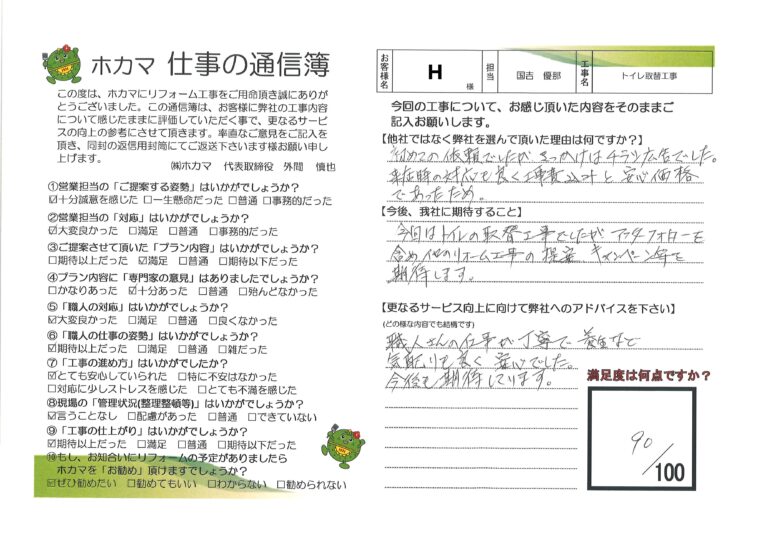 ホカマ 仕事の通信簿
この度は、ホカマにリフォーム工事をご用命頂き誠にありが
とうございました。この通信簿は、お客様に弊社の工事内容
について感じたままに評価していただく事で、更なるサービ
スの向上の参考にさせて頂きます。率直なご意見をご記入を
頂き、同封の返信用封筒にてご返送下さいます様お願い申し
上げます。
㈱ホカマ 代表取締役 外間 慎也
①営業担当の「ご提案する姿勢」はいかがでしょうか?
☑十分誠意を感じた □一生懸命だった □普通 □事務的だった
②営業担当の「対応」はいかがでしょうか?
☑大変良かった □満足 □普通 □事務的だった
③ご提案させて頂いた「プラン内容」はいかがでしょうか?
□期待以上だった ☑満足 □普通 □期待以下だった
④プラン内容に「専門家の意見」はありましたでしょうか?
□かなりあった ☑十分あった □普通 □殆んどなかった
⑤「職人の対応」はいかがでしょうか?
☑大変良かった □満足 □普通 □良くなかった
⑥「職人の仕事の姿勢」はいかがでしょうか?
☑期待以上だった □満足 □普通 □雑だった
⑦「工事の進め方」はいかがでしたか?
☑とても安心していられた □特に不安はなかった
□対応に少しストレスを感じた □とても不満を感じた
⑧現場の「管理状況(整理整頓等)」はいかがでしょうか?
☑言うことなし □配慮があった □普通 □できていない
⑨「工事の仕上がり」はいかがでしょうか?
☑期待以上だった □満足 □普通 □期待以下だった
⑩もし、お知合いにリフォームの予定がありましたら
ホカマを「お勧め」頂けますでしょうか?
☑ぜひ勧めたい □勧めてもいい □わからない □勧められない
お客様名 H 様 担当 国吉 優部 工事名 トイレ取替工事
今回の工事について、お感じ頂いた内容をそのままご
記入お願いします。
【他社ではなく弊社を選んで頂いた理由は何ですか?】
初めての依頼でしたが きっかけはチラシ広告でした。
来店時の対応も良く工事費込みと 安心価格
であったため。
【今後、我社に期待すること】
今回はトイレの取替工事でしたが アフターフォローを
含め他のリフォーム工事の提案 キャンペーン等で
期待します。
【更なるサービス向上に向けて弊社へのアドバイスを下さい】
(どの様な内容でも結構です)
職人さんの仕事が丁寧で 養生など
気配りも良く 安心でした。
今後も期待しています。
満足度は何点ですか?
90/100